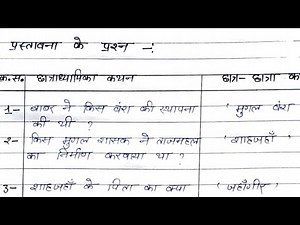 प्रस्तावना के प्रश्न -:
क्र.स. छात्राध्यापिका कथन छात्र- छात्रा क
1- बाबर ने किस वंश की स्थापना 'मुगल वंश
की थी ?
2- किस मुगल शासक ने ताजमहल 'शाहजहाँ'
का निर्माण करवाया था ?
3- शाहजहाँ के पिता का क्या 'जहाँगीर'